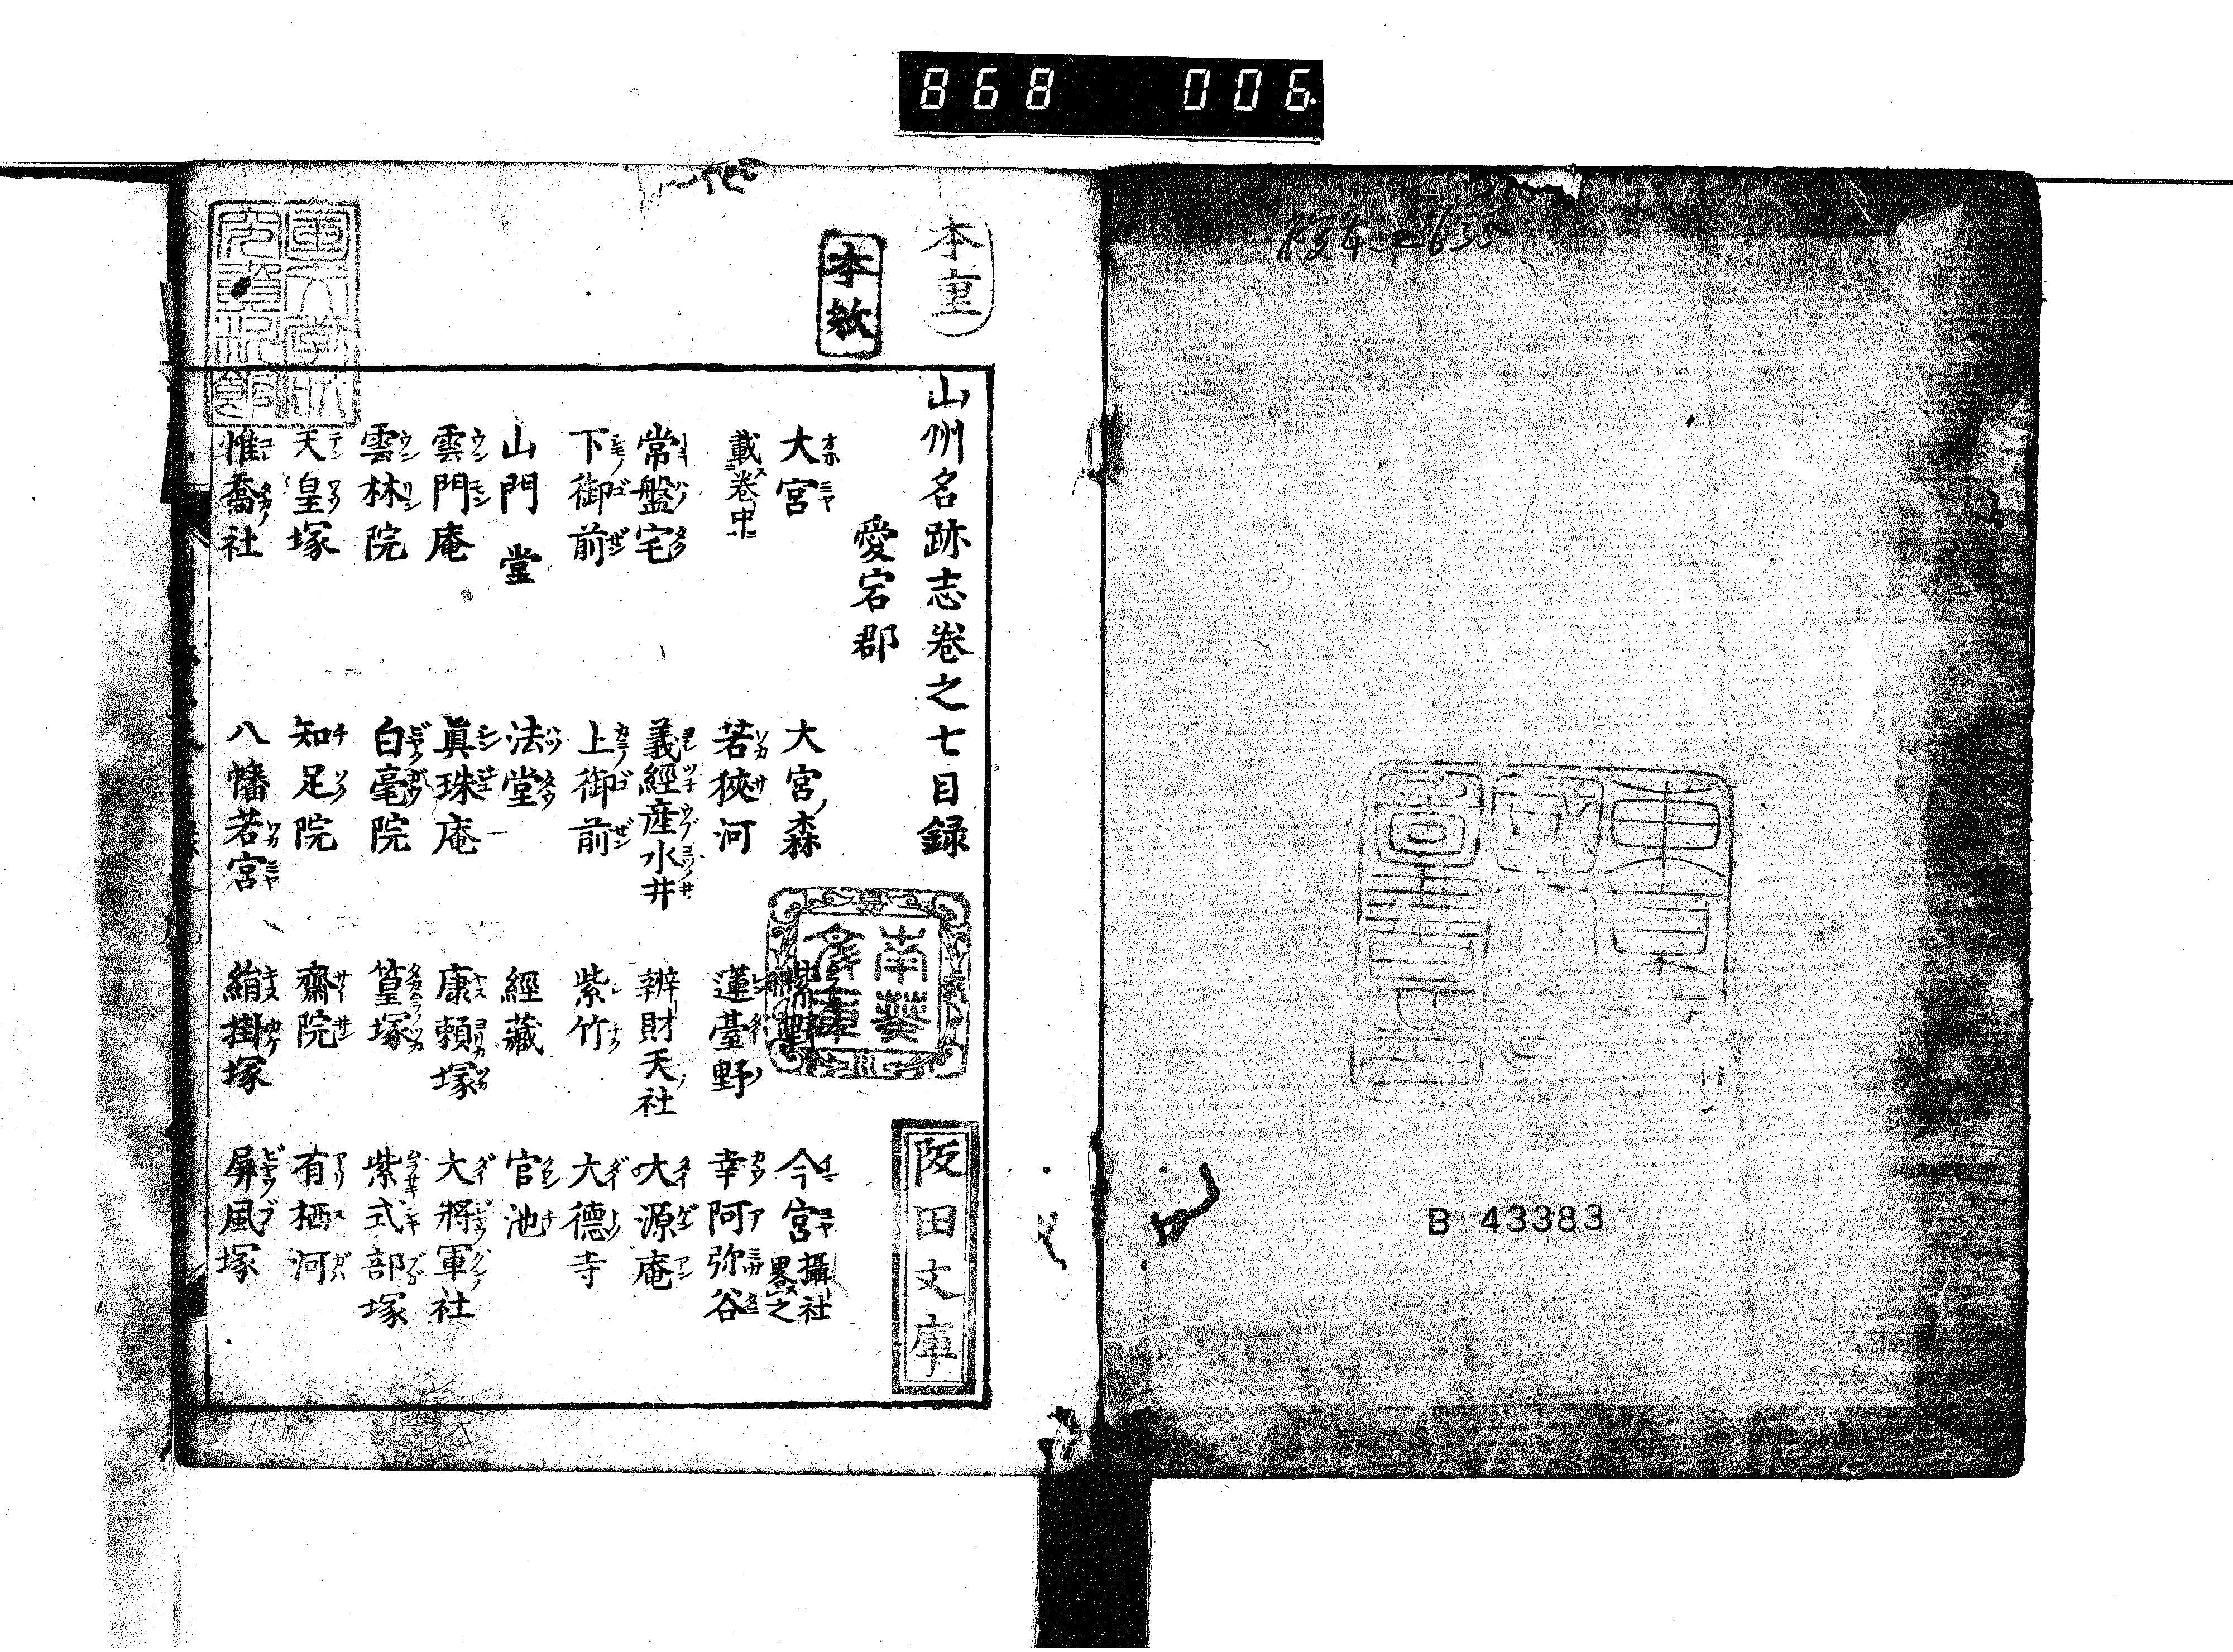 868 006
B 43383
本重
本教
山州名跡志卷之七目録
愛宕郡
大宮 大宮ノ森 紫野 今宮 攝社畧之
載卷中 若狹河 蓮臺野 幸阿弥谷
常盤宅 義經産水井 辨財天社 大源庵
下御前 上御前 紫竹 大德寺
山門 堂 法堂 經藏 官池
雲門庵 眞珠庵 康頼塚 大將軍社
雲林院 白毫院 篁塚 紫式部塚
天皇塚 知足院 齋院 有栖河
惟喬社 八幡若宮 絹掛塚 屏風塚
南葵文庫
阪田文庫